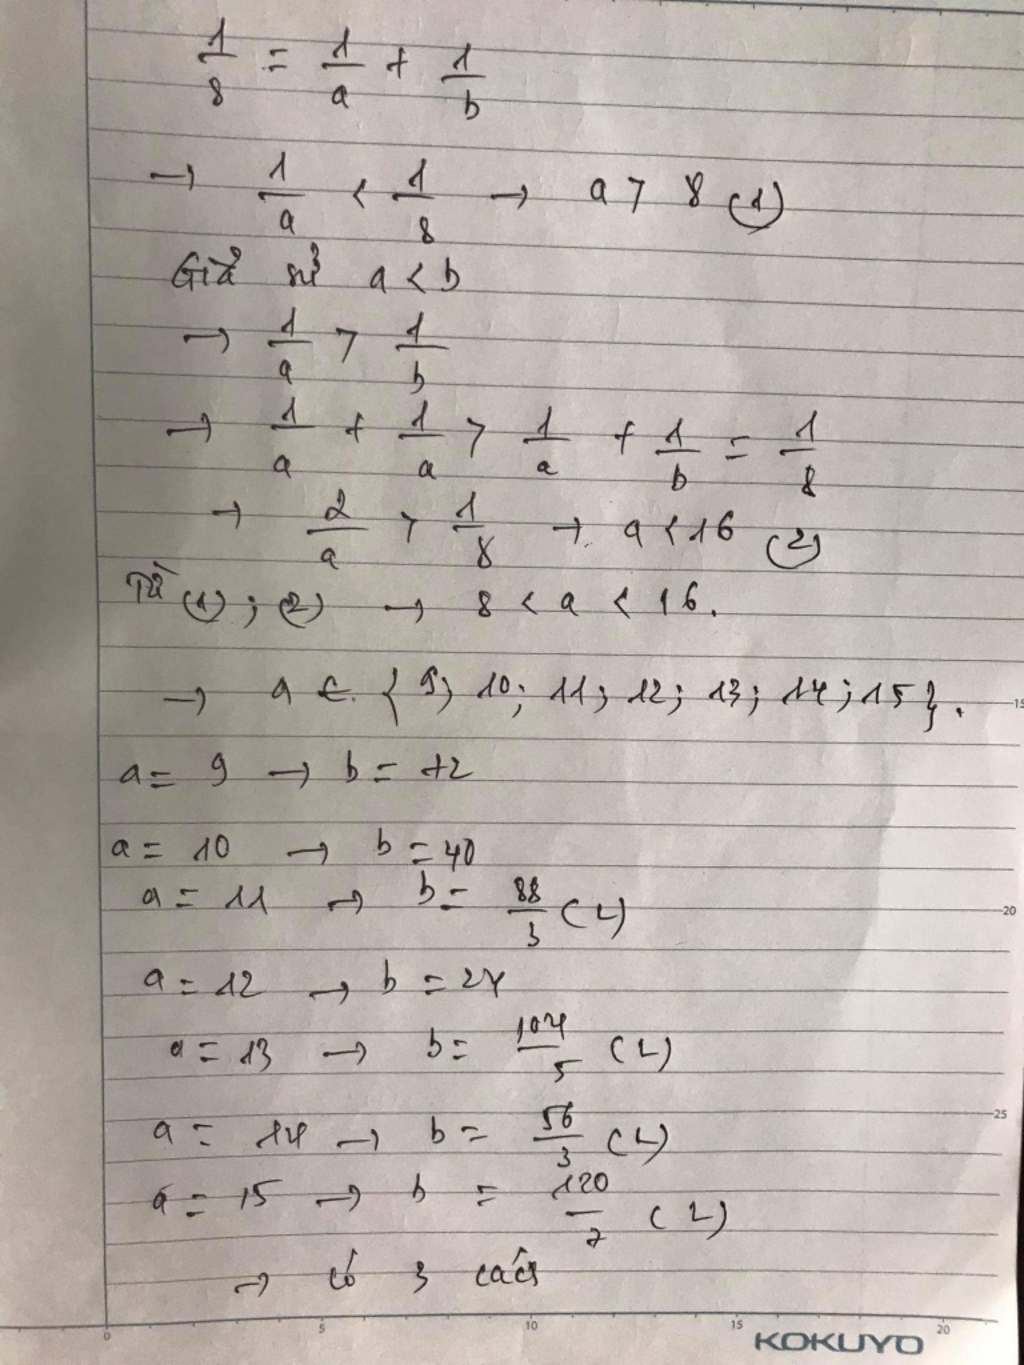 1/8 = 1/a + 1/b
→ 1/a < 1/8 → a > 8 (1)
Giả sử a < b
→ 1/a > 1/b
→ 1/a + 1/a > 1/a + 1/b = 1/8
→ 2/a > 1/8 → a < 16 (2)
Từ (1); (2) → 8 < a < 16.
→ a ∈ {9; 10; 11; 12; 13; 14; 15}.
a = 9 → b = 72
a = 10 → b = 40
a = 11 → b = 88/3 (L)
a = 12 → b = 24
a = 13 → b = 104/5 (L)
a = 14 → b = 56/3 (L)
a = 15 → b = 120/7 (L)
→ có 3 cách
15
20
25
0 5 10 15 20
KOKUYO